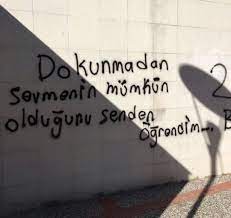 Dokunmadan
Sevmenin mümkün
olduğunu senden
öğrendim....
2
B